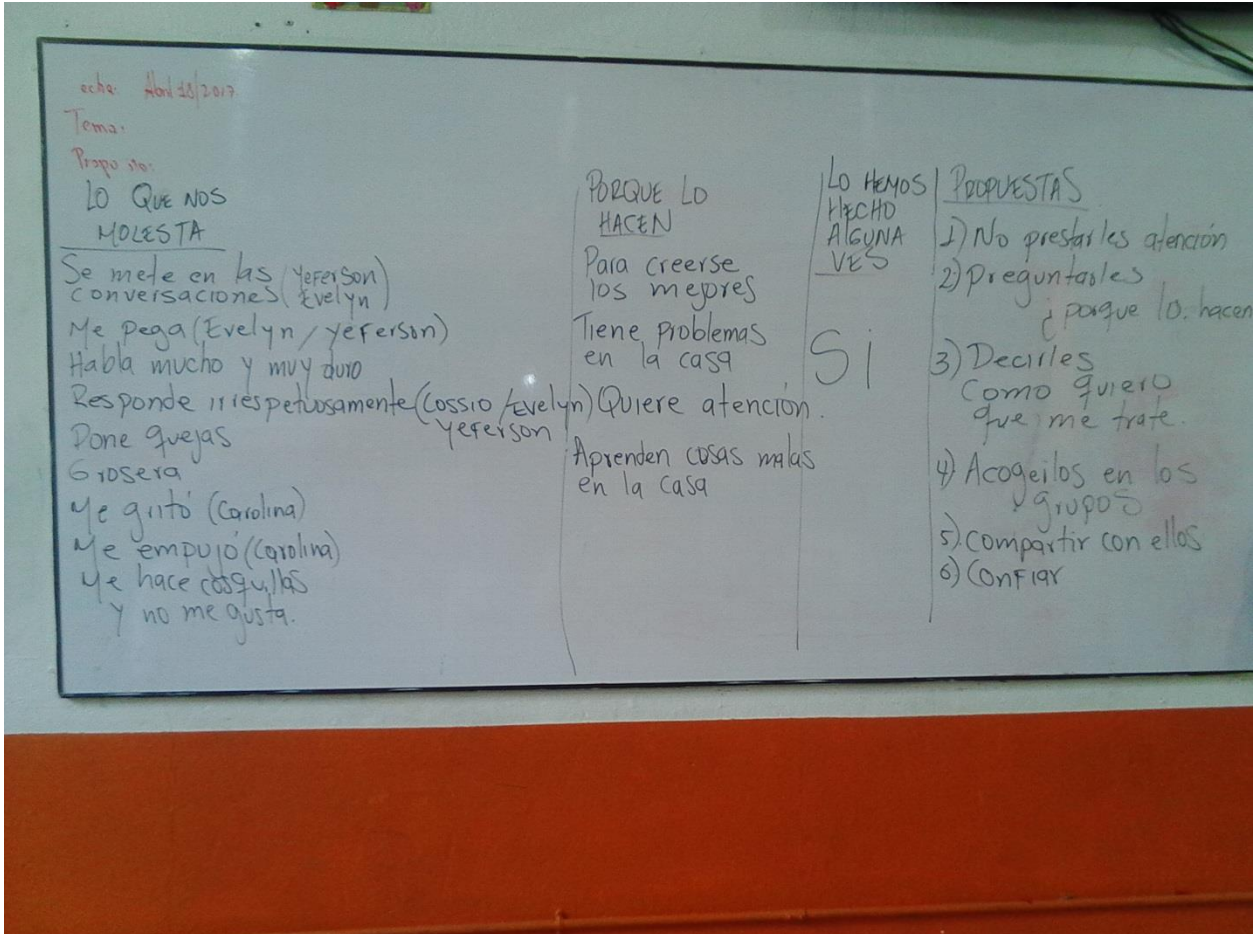 echa: Abril 18/2017
Tema:
Propo sito:
LO QUE NOS
MOLESTA
Se mete en las (Yeferson)
conversaciones (Evelyn)
Me pega (Evelyn / yeferson)
Habla mucho y muy duro
Responde irrespetuosamente (Cossio / Evelyn)
yeferson
Pone quejas
Grosera
Me gritó (Carolina)
Me empujó (Carolina)
Me hace cosquillas
y no me gusta.
PORQUE LO
HACEN
Para creerse
los mejores
Tiene problemas
en la casa
Quiere atención.
Aprenden cosas malas
en la casa
LO HEMOS
HECHO
AlGUNA
VES
Si
PROPUESTAS
1) No prestarles atención
2) Preguntarles
¿porque lo hacen
3) Decirles
Como quiero
que me trate.
4) Acogerlos en los
grupos
5) Compartir con ellos
6) Confiar